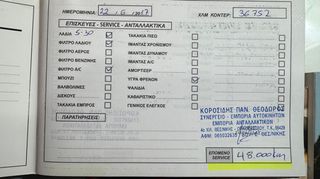 ΗΜΕΡΟΜΗΝΙΑ: 22.6.2017 ΧΛΜ ΚΟΝΤΕΡ: 36752
ΕΠΙΣΚΕΥΕΣ - SERVICE - ΑΝΤΑΛΛΑΚΤΙΚΑ
ΛΑΔΙΑ 5-30 ΤΑΚΑΚΙΑ ΠΙΣΩ
ΦΙΛΤΡΟ ΛΑΔΙΟΥ ΙΜΑΝΤΑΣ ΧΡΟΝΙΣΜΟΥ
ΦΙΛΤΡΟ ΑΕΡΟΣ ΙΜΑΝΤΑΣ ΔΥΝΑΜΟ
ΦΙΛΤΡΟ ΒΕΝΖΙΝΗΣ ΙΜΑΝΤΑΣ
ΦΙΛΤΡΟ A/C ΑΜΟΡΤΙΣΕΡ
ΜΠΟΥΖΙ ΥΓΡΑ ΦΡΕΝΩΝ
ΒΑΛΒΟΛΙΝΕΣ
ΔΙΣΚΟΠΛΑΚΕΣ ΚΑΥΣΑΕΡΙΑ
ΤΑΚΑΚΙΑ ΕΜΠΡΟΣ ΓΕΝΙΚΟΣ ΕΛΕΓΧΟΣ
ΠΑΡΑΤΗΡΗΣΕΙΣ:
ΚΟΡΟΣΙΔΗΣ ΠΑΝ. ΘΕΟΔΩΡΟΣ
ΣΥΝΕΡΓΕΙΟ - ΕΜΠΟΡΙΑ ΑΥΤΟΚΙΝΗΤΩΝ
ΕΜΠΟΡΙΑ ΑΝΤΑΛΛΑΚΤΙΚΩΝ
ΘΕΣ/ΝΙΚΗΣ
ΕΠΟΜΕΝΟ
SERVICE 48.000km